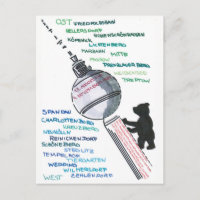 OST FRIEDRICHSHAIN
HELLERSDORF
KÖPENICK HOHENSCHÖNHAUSEN
LICHTENBERG
MARZAHN MITTE
PANKOW
PRENZLAUER BERG
WEISSENSEE
TREPTOW
SPANDAU
CHARLOTTENBURG
KREUZBERG
NEUKÖLLN
REINICKENDORF
SCHÖNEBERG
STEGLITZ
TEMPELHOF
TIERGARTEN
WEDDING
WILMERSDORF
WEST ZEHLENDORF